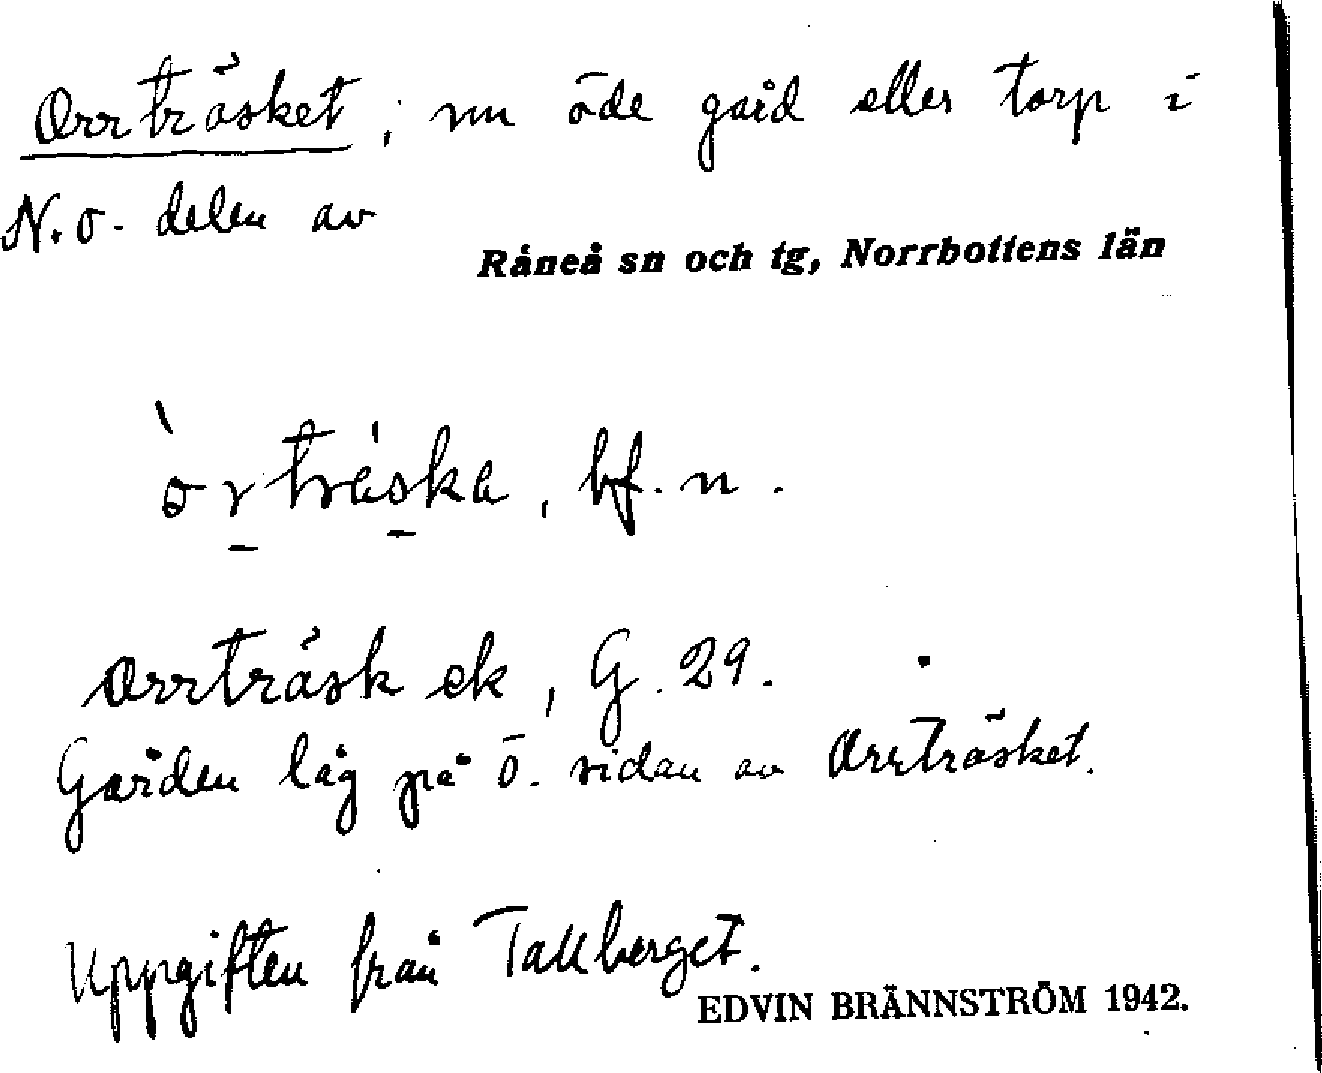 Orrträsket, nu öde gård eller torp i
N.O. delen av
Råneå sn och tg, Norrbottens län
òrtráska, bf. n.
Orrträsk ek, G. 29.
Gården låg på Ö. sidan av Orrträsket.
Uppgiften från Tallberget.
EDVIN BRÄNNSTRÖM 1942.